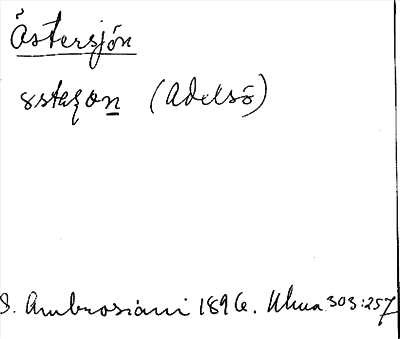 Östersjön
(Adelsö)
S. Ambrosiani 1896. Ulma 303:257